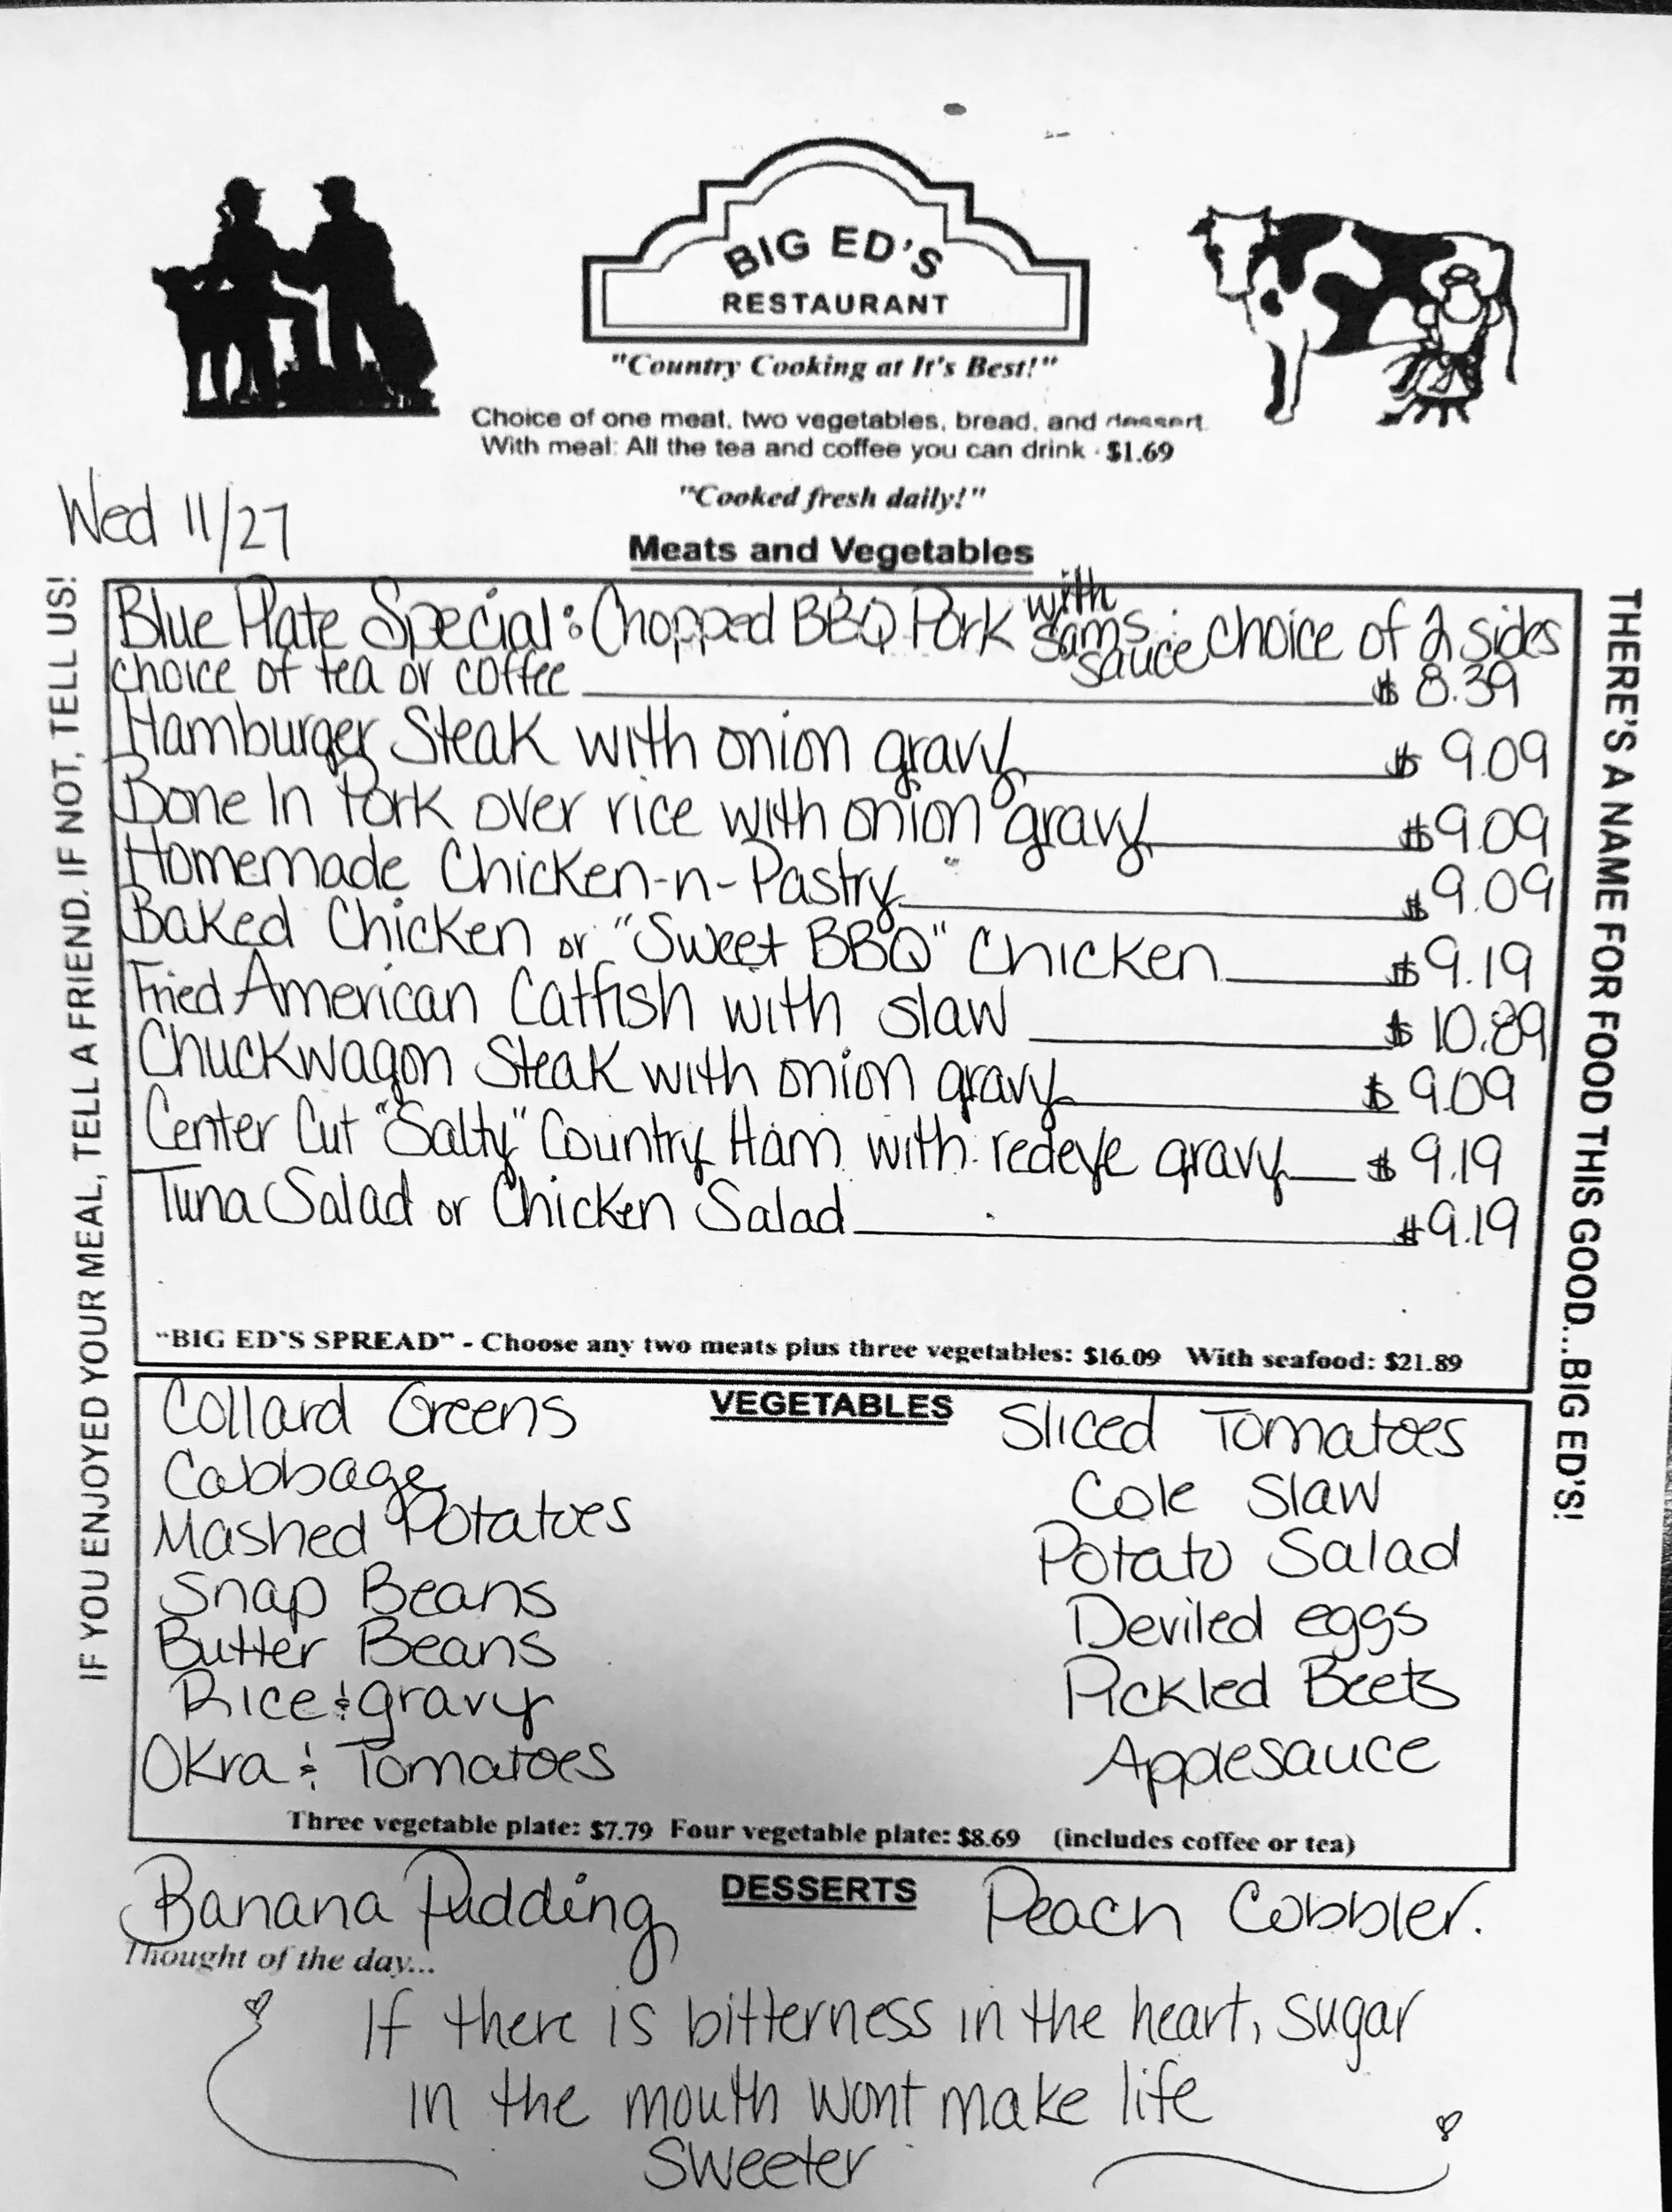 BIG ED'S
RESTAURANT
"Country Cooking at It's Best!"
Choice of one meat, two vegetables, bread, and dessert.
With meal: All the tea and coffee you can drink - $1.69
"Cooked fresh daily!"
Wed 11/27
Meats and Vegetables
Blue Plate Special: Chopped BBQ Pork with Sams sauce choice of 2 sides
choice of tea or coffee $ 8.39
Hamburger Steak with onion gravy $ 9.09
Bone In Pork over rice with onion gravy $9.09
Homemade Chicken-n-Pastry $9.09
Baked Chicken or "Sweet BBQ" Chicken $9.19
Fried American Catfish with slaw $ 10.89
Chuckwagon Steak with onion gravy $ 9.09
Center Cut "Salty" Country Ham with redeye gravy $ 9.19
Tuna Salad or Chicken Salad $9.19
"BIG ED'S SPREAD" - Choose any two meats plus three vegetables: $16.09 With seafood: $21.89
VEGETABLES
Collard Greens
Cabbage
Mashed Potatoes
Snap Beans
Butter Beans
Rice & gravy
Okra & Tomatoes
Sliced Tomatoes
Cole Slaw
Potato Salad
Deviled eggs
Pickled Beets
Applesauce
Three vegetable plate: $7.79 Four vegetable plate: $8.69 (includes coffee or tea)
DESSERTS
Banana Pudding
Peach Cobbler.
Thought of the day...
If there is bitterness in the heart, sugar
in the mouth wont make life
sweeter
IF YOU ENJOYED YOUR MEAL, TELL A FRIEND. IF NOT, TELL US!
THERE'S A NAME FOR FOOD THIS GOOD...BIG ED'S!